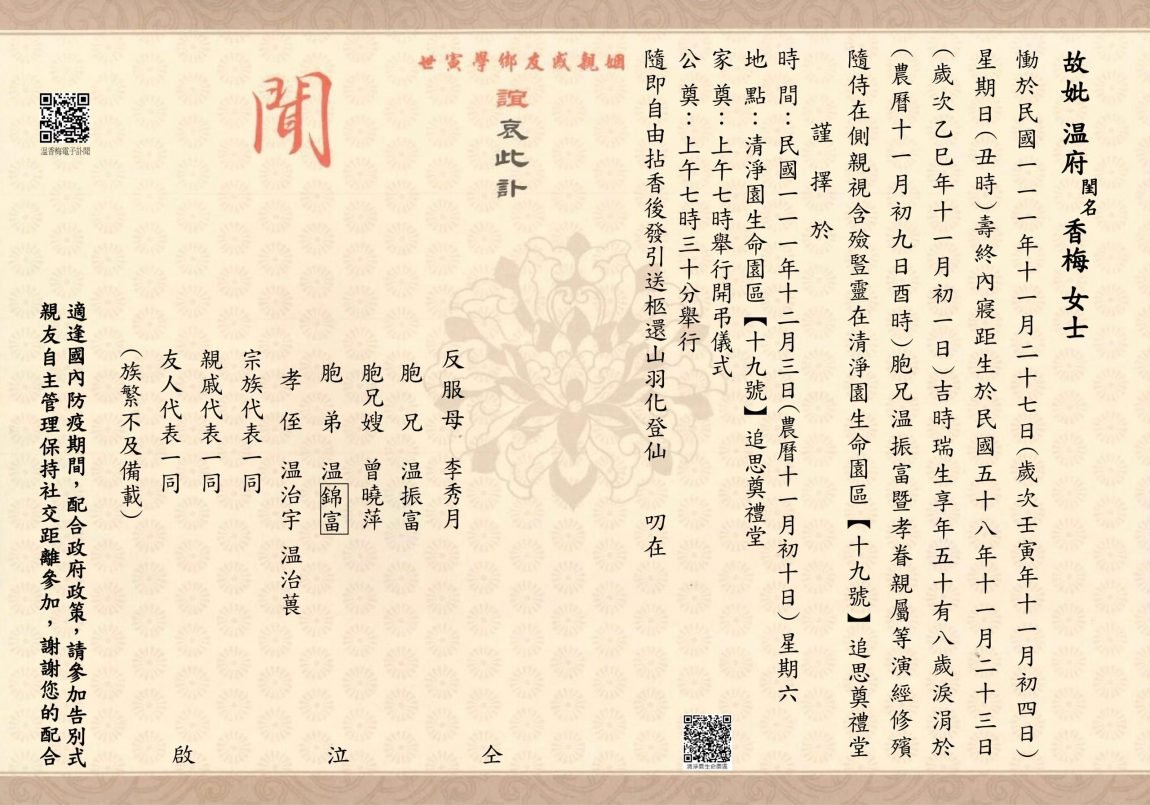 故妣 温府 閨名 香梅 女士
慟於民國一一一年十一月二十七日(歲次壬寅年十一月初四日)
星期日(丑時)壽終內寢距生於民國五十八年十一月二十三日
(歲次乙巳年十一月初一日)吉時瑞生享年五十有八歲淚涓於
(農曆十一月初九日酉時)胞兄温振富暨孝眷親屬等演經修殯
隨侍在側親視含殮豎靈在清淨園生命園區【十九號】追思奠禮堂
謹擇於
時間：民國一一一年十二月三日(農曆十一月初十日)星期六
地點：清淨園生命園區【十九號】追思奠禮堂
家奠：上午七時舉行開弔儀式
公奠：上午七時三十分舉行
隨即自由拈香後發引送柩還山羽化登仙 叨在
世寅學鄉友戚親姻
誼哀此訃
聞
反服母 李秀月
胞兄 温振富
胞兄嫂 曾曉萍
胞弟 温錦富
孝侄 温治宇 温治萇
宗族代表一同
親戚代表一同
友人代表一同
(族繁不及備載)
仝
泣
啟
適逢國內防疫期間，配合政府政策，請參加告別式
親友自主管理保持社交距離參加，謝謝您的配合
温香梅電子訃聞
清淨園生命園區